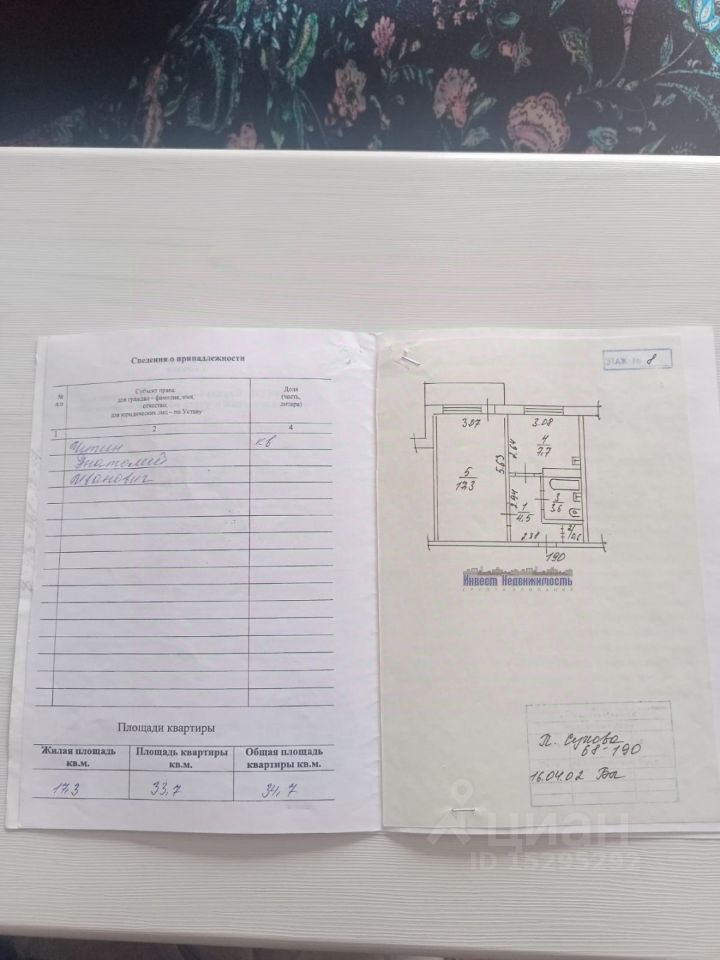 Сведения о принадлежности
№ п.п
Субъект права:
для граждан – фамилия, имя,
отчество;
для юридических лиц – по Уставу
Доля
(часть,
литера)
1 2 4
кв
Анатолий
Иванович
Площади квартиры
Жилая площадь кв.м. Площадь квартиры кв.м. Общая площадь квартиры кв.м.
17,3 33,7 34,7
ЭТАЖ № 8
3.07 3.08
2.64
4
7,7
5
17,3
5.63
2.94
1
4,5
3
3,6
2.38
2
0,6
190
Инвест Недвижимость
ГРУППА КОМПАНИЙ
П. Сухова
68-190
16.04.02
циан
ID 15295292